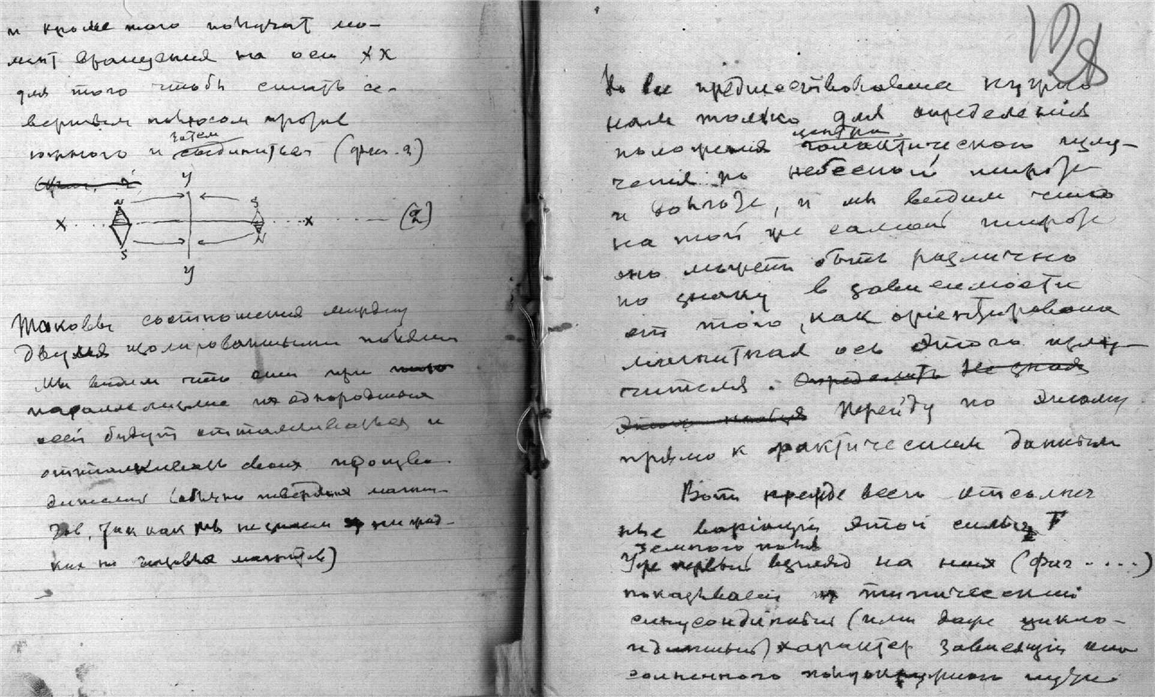 и кроме того получат мо-
мент вращения на оси XX
для того чтобы стать се-
верным полюсом против
затем
южного и соединиться (фиг. 2)
y
N S
x x (2)
S N
y
Таковы соотношения между
двумя изолированными
Мы видим что они при
параллелизме их однородных
осей будут отталкиваться и
отталкивать своих
(обычно твердых магни-
тов, так как мы не знаем ни жид-
ких ни газовых магнитов)
128
Но все предшествовавшее нужно
нам только для определения
центра
положения галактического излу-
чения по небесной широте
и долготе, и мы видим что
на той же самой широте
оно может быть различно
по знаку в зависимости
от того, как орiентирована
магнитная ось этого излу-
чителя. Определить не зная
Перейду по этому
прямо к фактическим данным
Вот прежде всего отсолнеч
ные варiации этой силы
земного поля
Уже первый взгляд на них (фиг ....)
показывает их типический
синусоидальный (или даже цикло-
идальный) характер зависящий от
солнечного